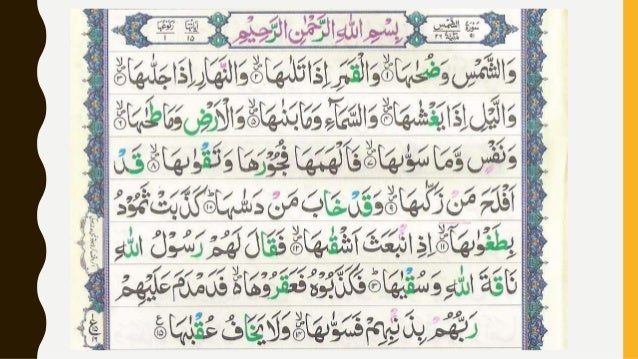 سورة الشمس مكية ٢٦
بِسْمِ اللهِ الرَّحْمٰنِ الرَّحِيْمِ
اٰيَاتُهَا ١٥ رُكُوْعُهَا ١
وَالشَّمْسِ وَضُحٰىهَا ۙ‏﴿۱﴾ وَالْقَمَرِ اِذَا تَلٰىهَا ۙ‏﴿۲﴾ وَالنَّهَارِ اِذَا جَلّٰىهَا ۙ‏﴿۳﴾
وَالَّيْلِ اِذَا يَغْشٰىهَا ۙ‏﴿۴﴾ وَالسَّمَآءِ وَمَا بَنٰىهَا ۙ‏﴿۵﴾ وَالْاَرْضِ وَمَا طَحٰىهَا ۙ‏﴿۶﴾
وَنَفْسٍ وَّمَا سَوّٰىهَا ۙ‏﴿۷﴾ فَاَلْهَمَهَا فُجُوْرَهَا وَتَقْوٰىهَا ۙ‏﴿۸﴾ قَدْ
اَفْلَحَ مَنْ زَكّٰىهَا ۙ‏﴿۹﴾ وَقَدْ خَابَ مَنْ دَسّٰىهَا ؕ‏﴿۱۰﴾ كَذَّبَتْ ثَمُوْدُ
بِطَغْوٰىهَاۤ ۙ‏﴿۱۱﴾ اِذِ انْۢبَعَثَ اَشْقٰىهَا ۙ‏﴿۱۲﴾ فَقَالَ لَهُمْ رَسُوْلُ اللهِ
نَاقَةَ اللهِ وَسُقْيٰهَا ؕ‏﴿۱۳﴾ فَكَذَّبُوْهُ فَعَقَرُوْهَا ۙ فَدَمْدَمَ عَلَيْهِمْ
رَبُّهُمْ بِذَنْۢبِهِمْ فَسَوّٰىهَا ۙ‏﴿۱۴﴾ وَلَا يَخَافُ عُقْبٰهَا‏﴿۱۵﴾ ع